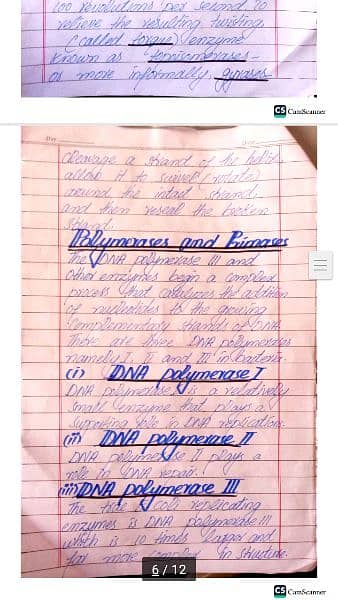 100 revolutions per second to
relieve the resulting twisting
(called torque) enzyme
known as topoisomerases -
or more informally gyrases
CS CamScanner
cleavage a strand of the helix
allow it to swivel (rotate)
around the intact strand,
and then reseal the broken
strand.
Polymerases and Primases
The DNA polymerase III and
other enzymes begin a complex
process that catalyzes the addition
of nucleotides to the growing
complementary strands of DNA.
There are three DNA polymerases
namely I, II and III in bacteria.
(i) DNA polymerase I
DNA polymerase I is a relatively
small enzyme that plays a
supporting role in DNA replication.
(ii) DNA polymerase II
DNA polymerase II plays a
role in DNA repair.
(iii) DNA polymerase III
The true E. coli replicating
enzymes is DNA polymerase III
which is 10 times larger and
far more complex in structure.
6 / 12
CS CamScanner